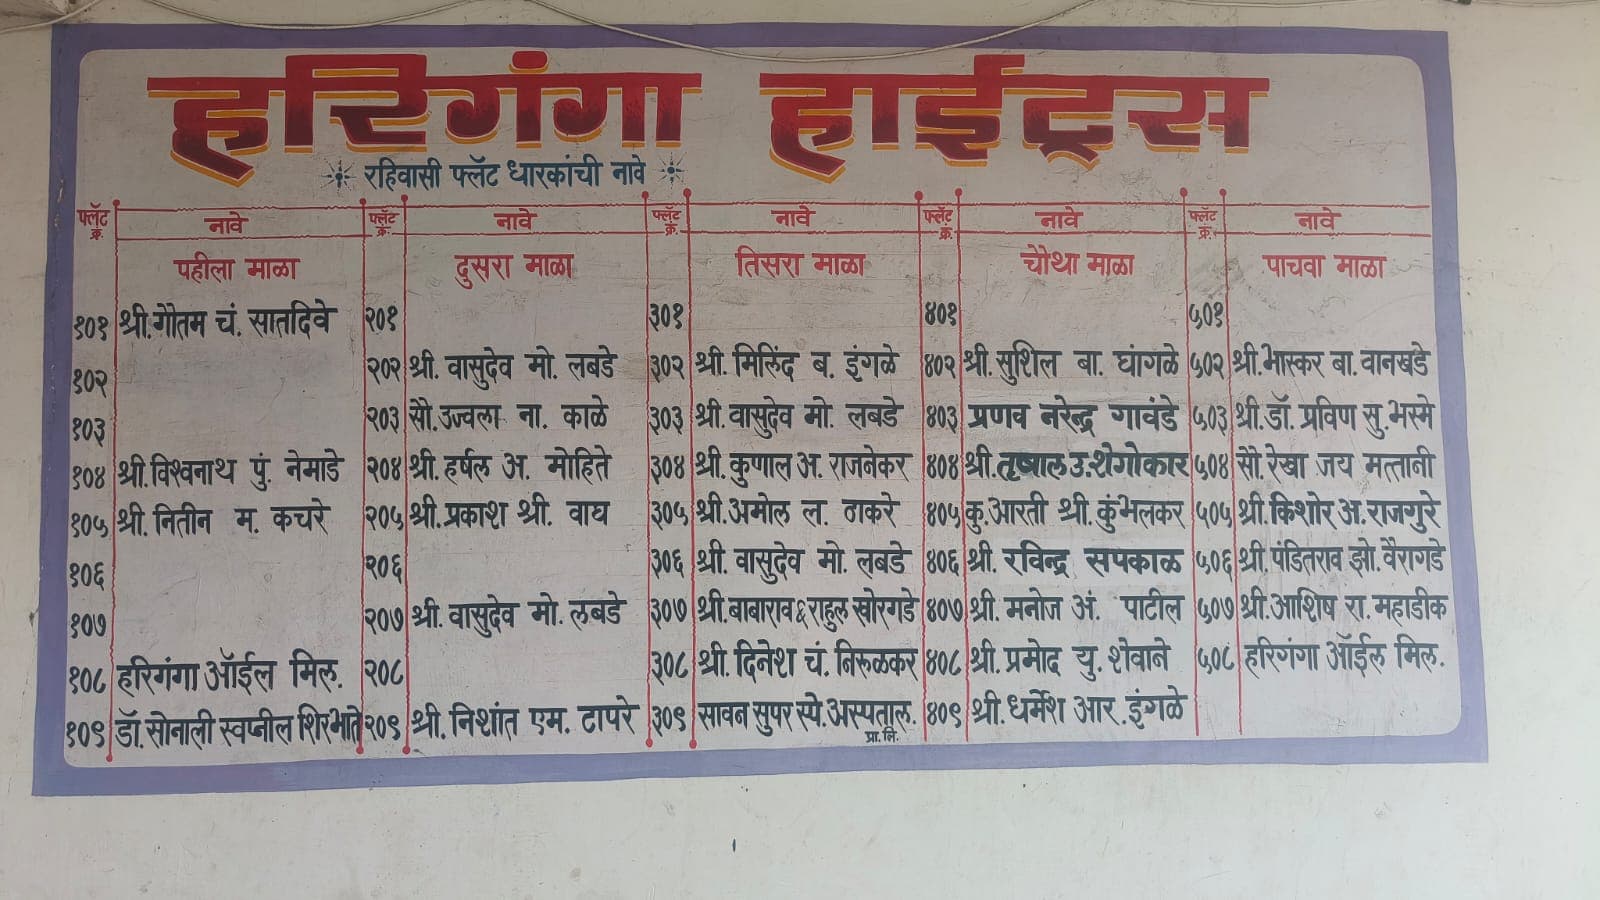 हरिगंगा हाईट्स
रहिवासी फ्लॅट धारकांची नावे
फ्लॅट क्र. नावे फ्लॅट क्र. नावे फ्लॅट क्र. नावे फ्लॅट क्र. नावे फ्लॅट क्र. नावे
पहीला माळा दुसरा माळा तिसरा माळा चौथा माळा पाचवा माळा
१०१ श्री.गौतम चं. सातदिवे २०१ ३०१ ४०१ ५०१
१०२ २०२ श्री. वासुदेव मो. लबडे ३०२ श्री. मिलिंद ब. इंगळे ४०२ श्री. सुशिल बा. घांगळे ५०२ श्री.भास्कर बा. वानखडे
१०३ २०३ सौ.उज्वला ना. काळे ३०३ श्री. वासुदेव मो. लबडे ४०३ प्रणव नरेन्द्र गावंडे ५०३ श्री.डॉ. प्रविण सु.भस्मे
१०४ श्री.विश्वनाथ पुं. नेमाडे २०४ श्री. हर्षल अ. मोहिते ३०४ श्री. कुणाल अ. राजनेकर ४०४ श्री.तृषाल उ.शेगोकार ५०४ सौ.रेखा जय मत्तानी
१०५ श्री. नितीन म. कचरे २०५ श्री.प्रकाश श्री. वाघ ३०५ श्री.अमोल ल. ठाकरे ४०५ कु.आरती श्री.कुंभलकर ५०५ श्री.किशोर अ.राजगुरे
१०६ २०६ ३०६ श्री. वासुदेव मो. लबडे ४०६ श्री. रविन्द्र सपकाळ ५०६ श्री.पंडितराव झो.वैरागडे
१०७ २०७ श्री. वासुदेव मो. लबडे ३०७ श्री.बाबाराव & राहुल खोरगडे ४०७ श्री. मनोज अं. पाटील ५०७ श्री.आशिष रा. महाडीक
१०८ हरिगंगा ऑईल मिल. २०८ ३०८ श्री. दिनेश चं. निरूळकर ४०८ श्री. प्रमोद यु. शेवाने ५०८ हरिगंगा ऑईल मिल.
१०९ डॉ.सोनाली स्वप्नील शिरभाते २०९ श्री. निशांत एम. टापरे ३०९ सावन सुपर स्पे.अस्पताल. प्रा.लि. ४०९ श्री. धर्मेश आर. इंगळे